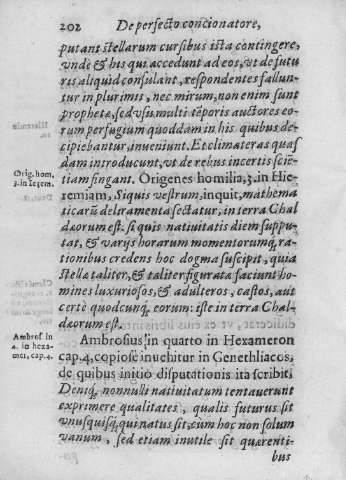 202 De perfecto concionatore,
putant stellarum cursibus ista contingere,
vndè & his qui accedunt ad eos, vt de futu
ris aliquid consulant, respondentes fallun-
tur in plurimis, nec mirum, non enim sunt
prophetæ, sed vsu multi tẽporis auctores eo-
rum perfugium quoddam in his quibus de-
cipiebantur, inueniunt. Et climateras quas
dam introducunt, vt de rebus incertis sciẽ-
Orig. hom,
tiam fingant. Origenes homilia, 3. in Hie-
3. in Ierem.
remiam, Si quis vestrum, inquit, mathema
ticarũ deliramenta sectatur, in terra Chal
dæorum est. si quis natiuitatis diem suppu-
tat, & varijs horarum momentorumq́; ra-
tionibus credens hoc dogma suscipit, quia
stella taliter, & taliter figurata faciunt ho-
mines luxuriosos, & adulteros, castos, aut
certè quodcunq́; eorum: iste in terra Chal-
dæorum est.
Ambros. in
Ambrosius in quarto in Hexameron
4. in hexa-
cap. 4, copiosè inuehitur in Genethliacos,
mer, cap. 4.
de quibus initio disputationis ita scribit,
Deniq́; nonnulli natiuitatum tentauerunt
exprimere qualitates, qualis futurus sit
vnusquisq́; qui natus sit, cum hoc non solum
vanum, sed etiam inutile sit quærenti-
bus